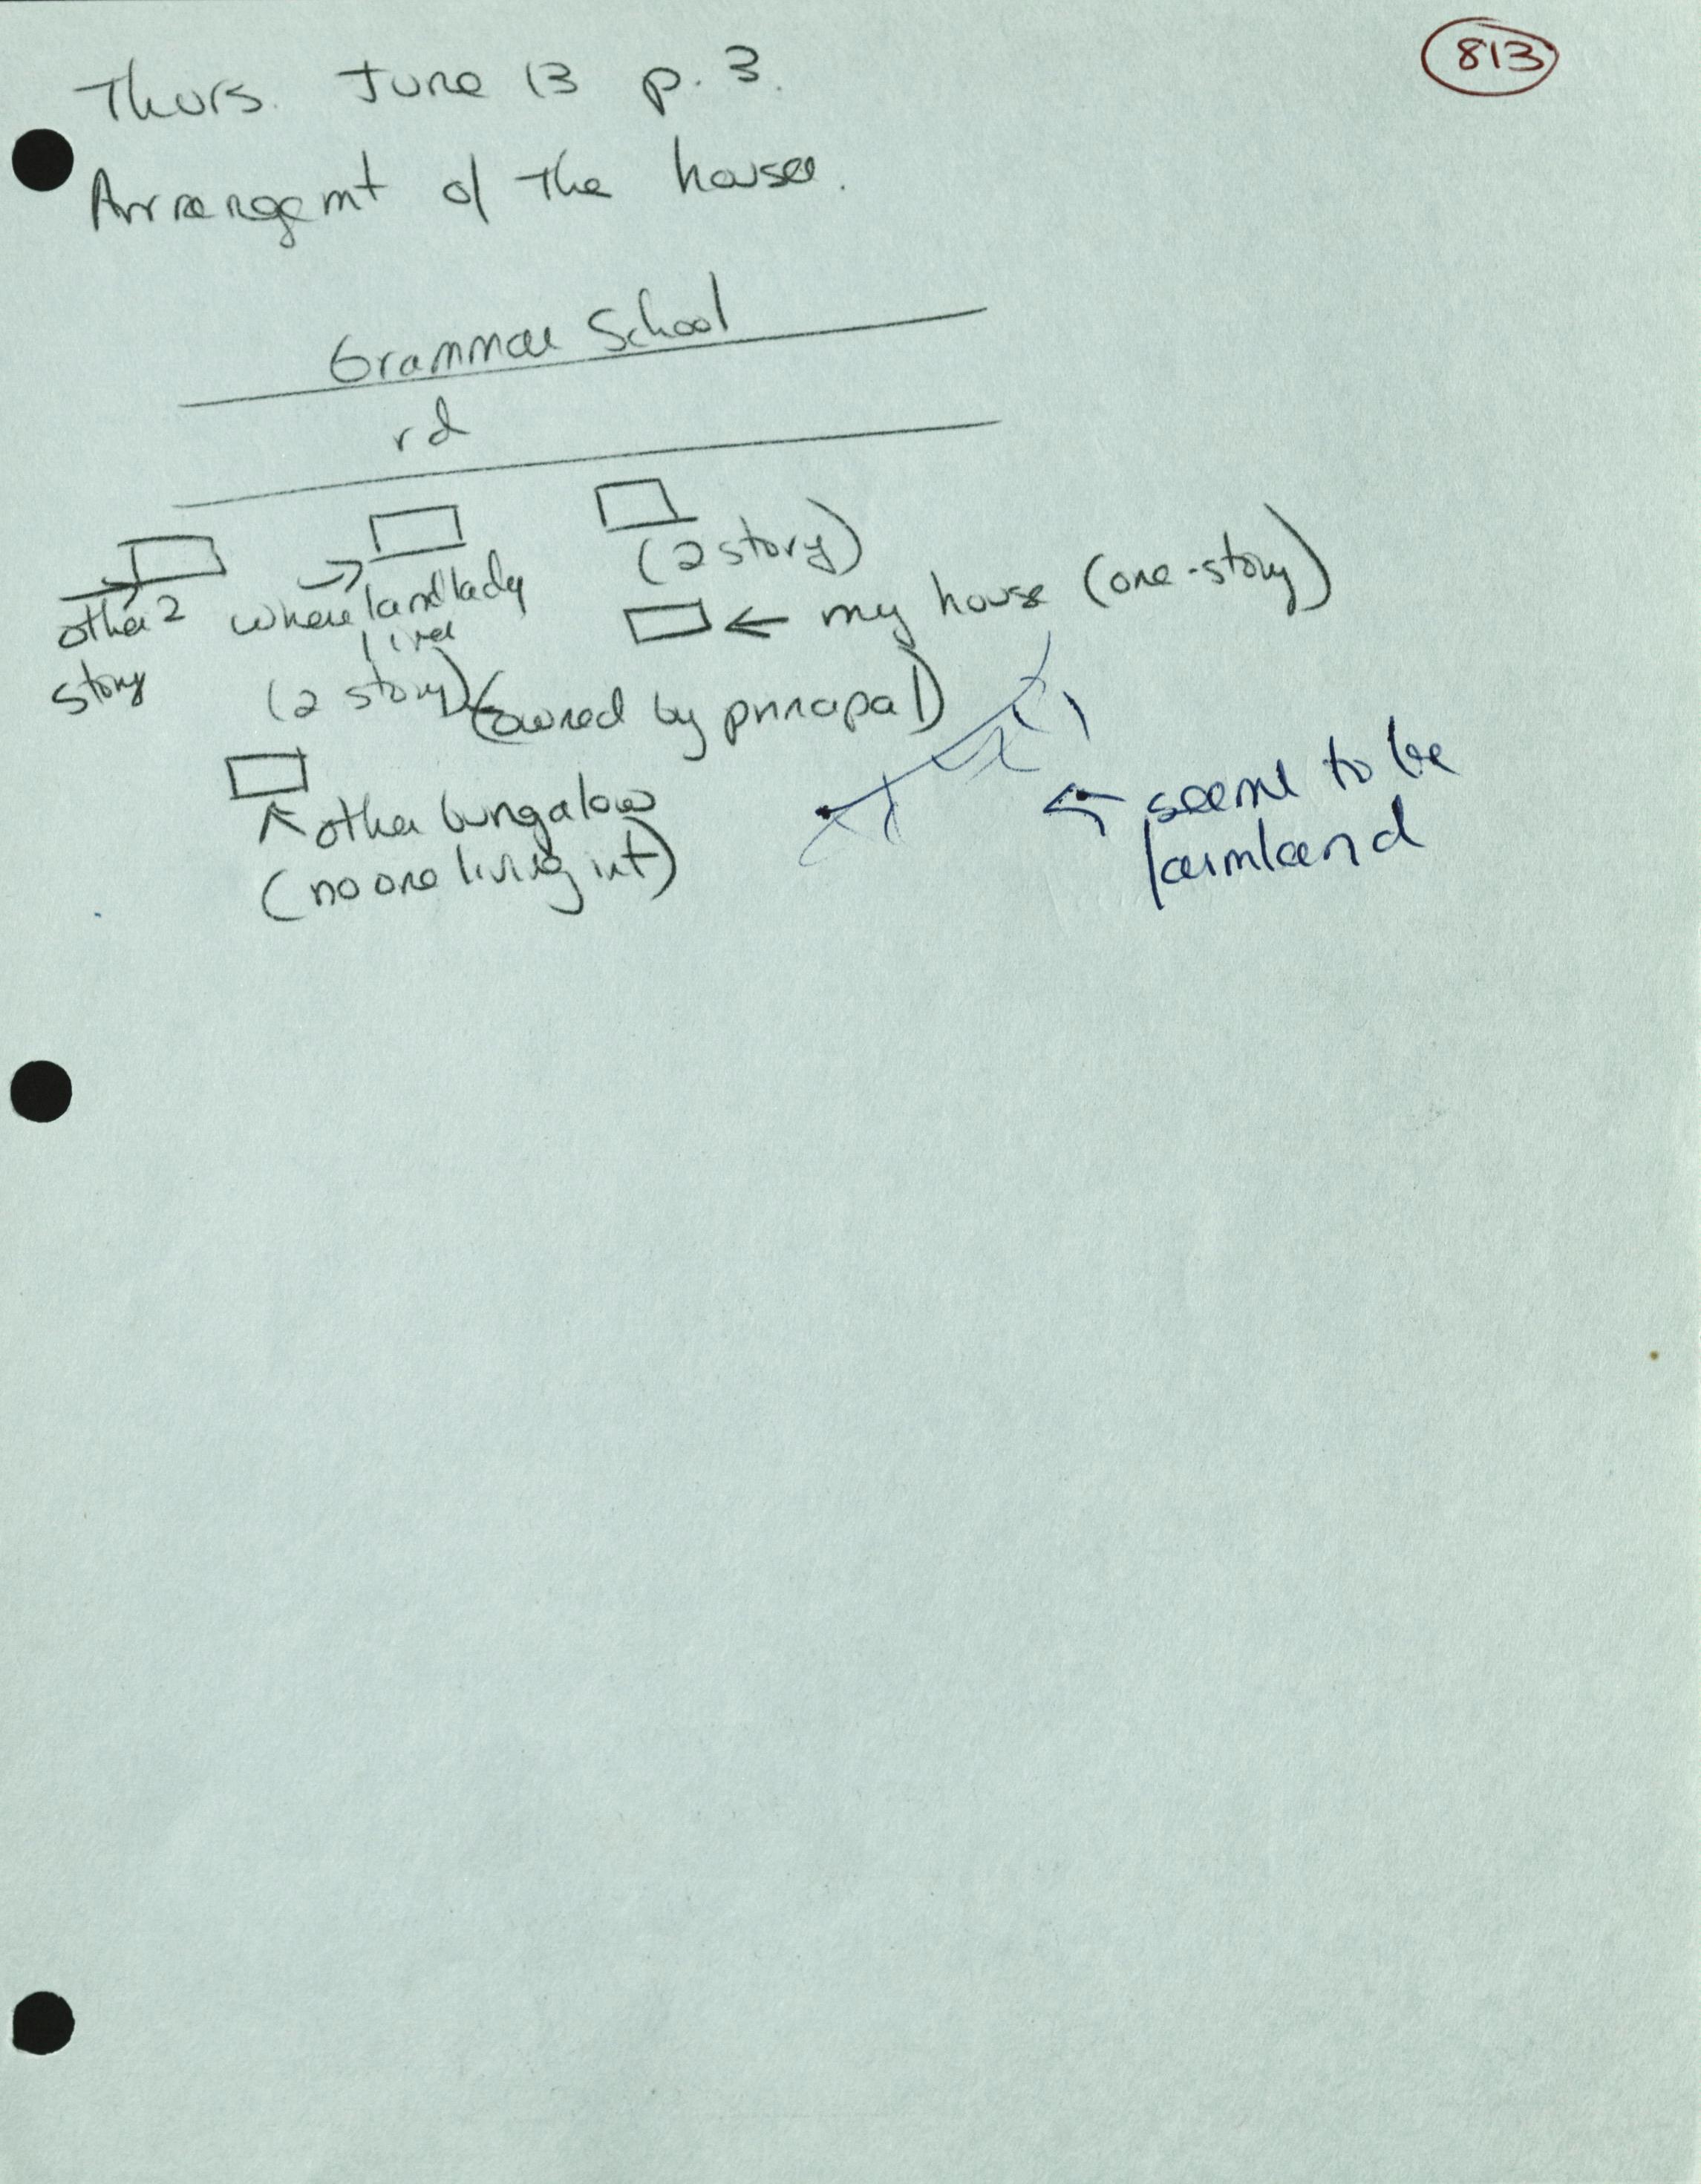 813
Thurs. June 13 p. 3.
Arrangemt of the houses.
Grammar School
rd
(2 story)
other 2
story
where landlady
lives
(2 story)
my house (one-story)
(owned by principal)
other bungalow
(no one living in it)
seems to be
farmland